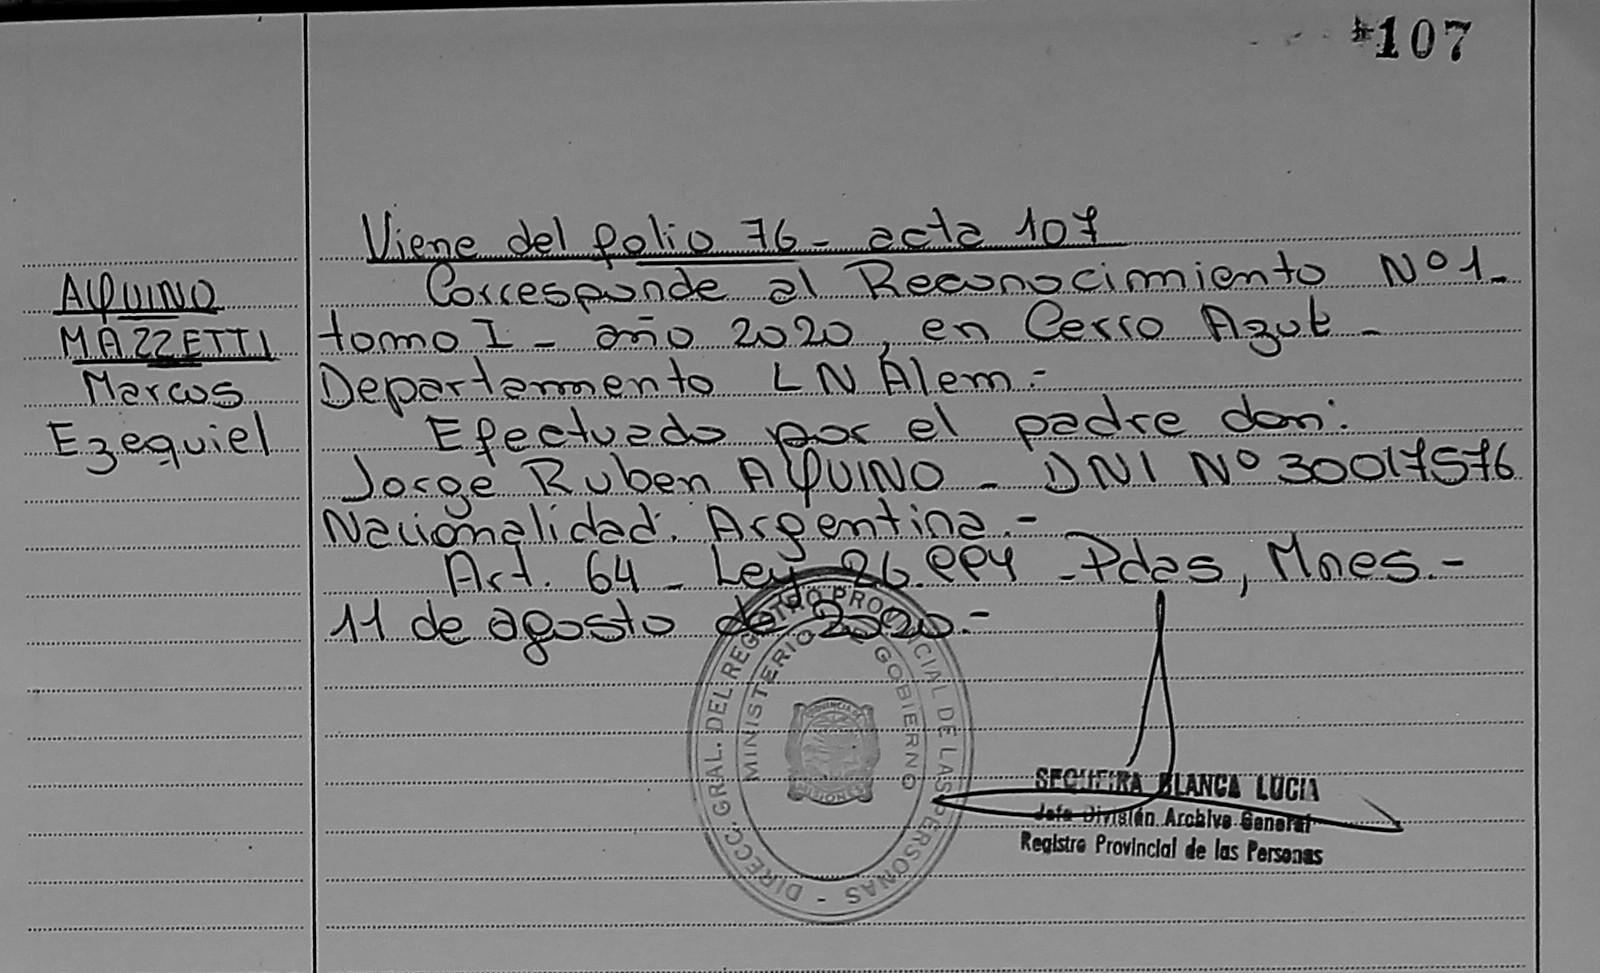 107
Viene del folio 76 - acta 107
AQUINO
MAZZETTI
Marcos
Ezequiel
Corresponde al Reconocimiento Nº 1 -
tomo I - año 2020, en Cerro Azul -
Departamento LN Alem.-
Efectuado por el padre don:
Jorge Ruben AQUINO - DNI Nº 30017576
Nacionalidad: Argentina.-
Art. 64 - Ley 26.994 - Pdas, Mnes.-
11 de agosto de 2020.-
DIRECC. GRAL. DEL REGISTRO PROVINCIAL DE LAS PERSONAS -
MINISTERIO DE GOBIERNO
PROVINCIA DE
MISIONES
SEQUEIRA BLANCA LUCIA
Jefa División Archivo General
Registro Provincial de las Personas